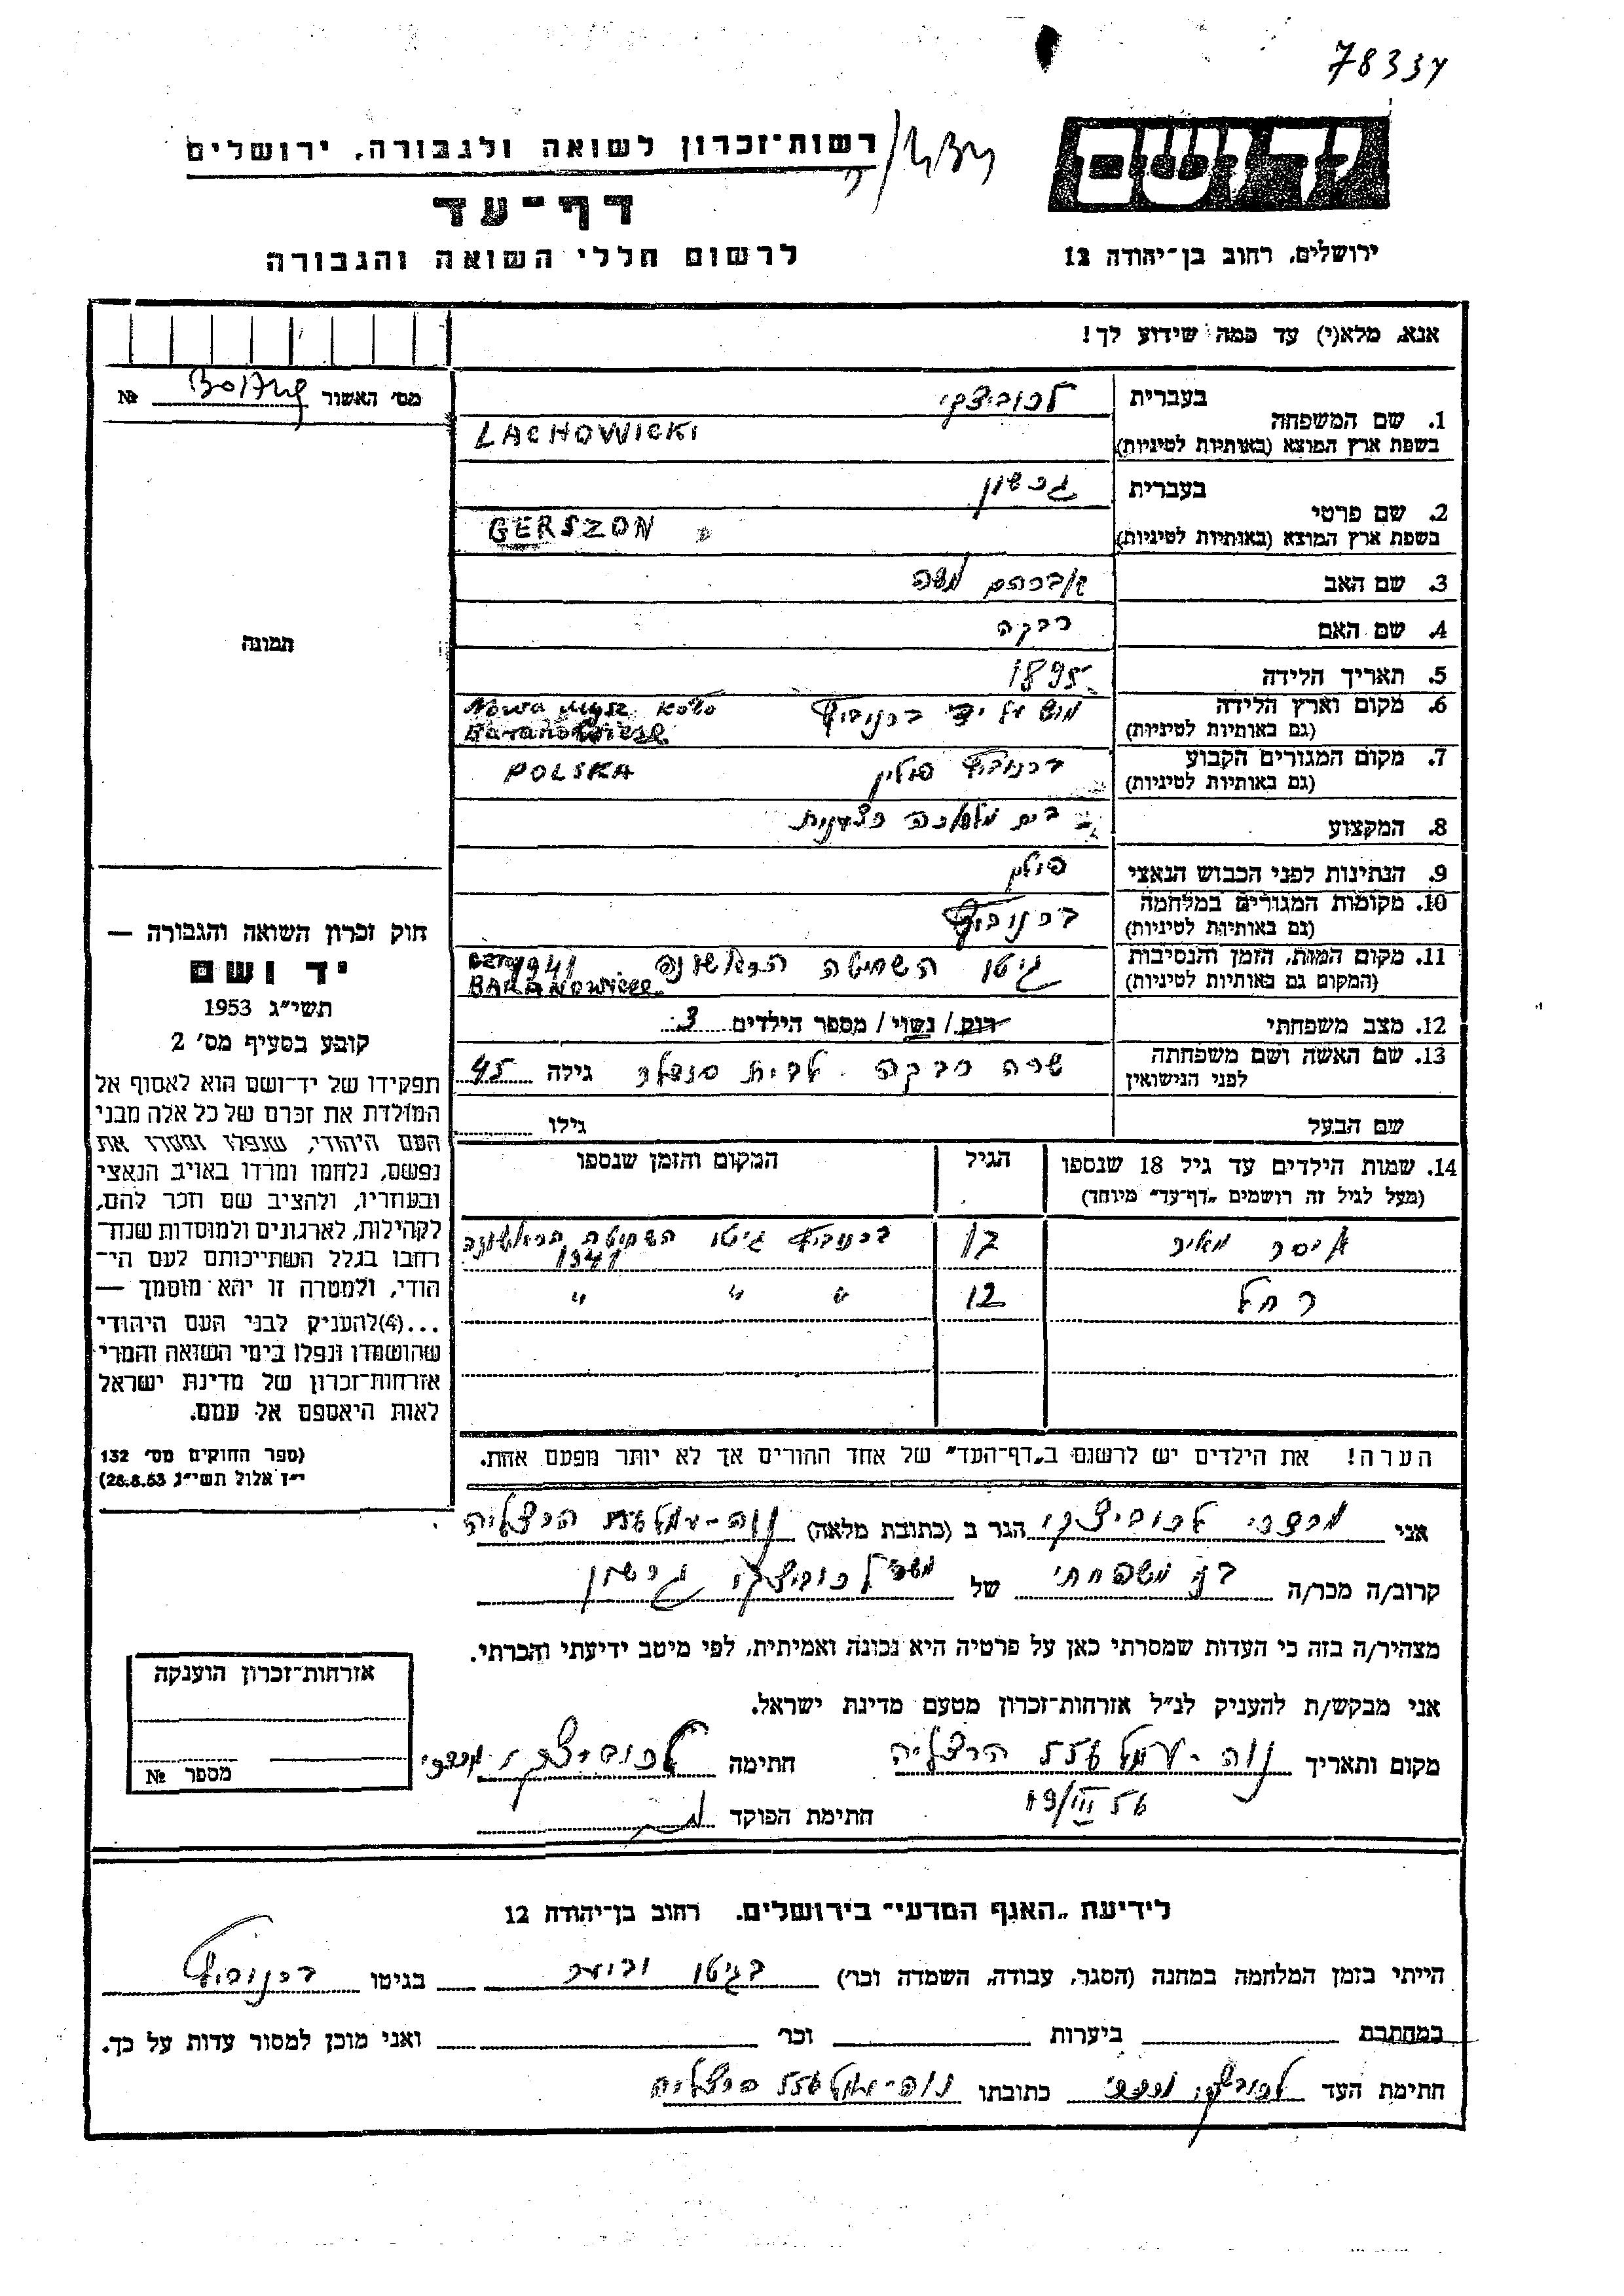 78334
רשות־זכרון לשואה ולגבורה, ירושלים
יד ושם
דף־עד
לרשום חללי השואה והגבורה
ירושלים, רחוב בן־יהודה 12
אנא, מלא(י) עד כמה שידוע לך!
מס׳ האשור №
1. שם המשפחה בעברית לכוביצקי
בשפת ארץ המוצא (באותיות לטיניות) LACHOWICKI
2. שם פרטי בעברית גרשון
בשפת ארץ המוצא (באותיות לטיניות) GERSZON
3. שם האב אברהם משה
4. שם האם רבקה
5. תאריך הלידה 1895
6. מקום וארץ הלידה מוש על יד ברנוביץ Nowa Mysz koło
(גם באותיות לטיניות) Baranowicze
7. מקום המגורים הקבוע ברנוביץ פולין POLSKA
(גם באותיות לטיניות)
8. המקצוע בית מלאכה
9. הנתינות לפני הכבוש הנאצי פולין
10. מקומות המגורים במלחמה ברנוביץ
(גם באותיות לטיניות)
11. מקום המות, הזמן והנסיבות גיטו השחיטה הראשונה 1941
(המקום גם באותיות לטיניות) BARANOWICZE
12. מצב משפחתי רוק / נשוי / מספר הילדים 3
13. שם האשה ושם משפחתה שרה רבקה לבית סנדלר גילה 45
לפני הנישואין
שם הבעל גילו
14. שמות הילדים עד גיל 18 שנספו הגיל המקום והזמן שנספו
(מעל לגיל זה רושמים „דף־עד״ מיוחד)
איסר מאיר 17 ברנוביץ גיטו השחיטה הראשונה
1941
רחל 12 " " "
הערה! את הילדים יש לרשום ב„דף־העד״ של אחד ההורים אך לא יותר מפעם אחת.
תמונה
חוק זכרון השואה והגבורה —
יד ושם
תשי״ג 1953
קובע בסעיף מס׳ 2
תפקידו של יד־ושם הוא לאסוף אל
המולדת את זכרם של כל אלה מבני
העם היהודי, שנפלו ומסרו את
נפשם, נלחמו ומרדו באויב הנאצי
ובעוזריו, ולהציב שם וזכר להם,
לקהילות, לארגונים ולמוסדות שנח־
רבו בגלל השתייכותם לעם הי־
הודי, ולמטרה זו יהא מוסמך —
...(4) להעניק לבני העם היהודי
שהושמדו ונפלו בימי השואה והמרי
אזרחות־זכרון של מדינת ישראל
לאות היאספם אל עמם.
(ספר החוקים מס׳ 132
י״ז אלול תשי״ג 28.8.53)
אני מרדכי לכוביצקי הגר ב (כתובת מלאה) נוה־עמל הרצליה
קרוב/ה מכר/ה בן משפחתי של לכוביצקי גרשון
מצהיר/ה בזה כי העדות שמסרתי כאן על פרטיה היא נכונה ואמיתית, לפי מיטב ידיעתי והכרתי.
אני מבקש/ת להעניק לנ״ל אזרחות־זכרון מטעם מדינת ישראל.
מקום ותאריך נוה־עמל 556 הרצליה חתימה לכוביצקי מרדכי
19/III 56
חתימת הפוקד
אזרחות־זכרון הוענקה
מספר №
לידיעת „האגף המדעי״ בירושלים, רחוב בן־יהודה 12
הייתי בזמן המלחמה במחנה (הסגר, עבודה, השמדה וכר׳) בגיטו בגיטו ברנוביץ
במחתרת ביערות וכר׳ ואני מוכן למסור עדות על כך.
חתימת העד לכוביצקי מרדכי כתובתו נוה־עמל 556 הרצליה